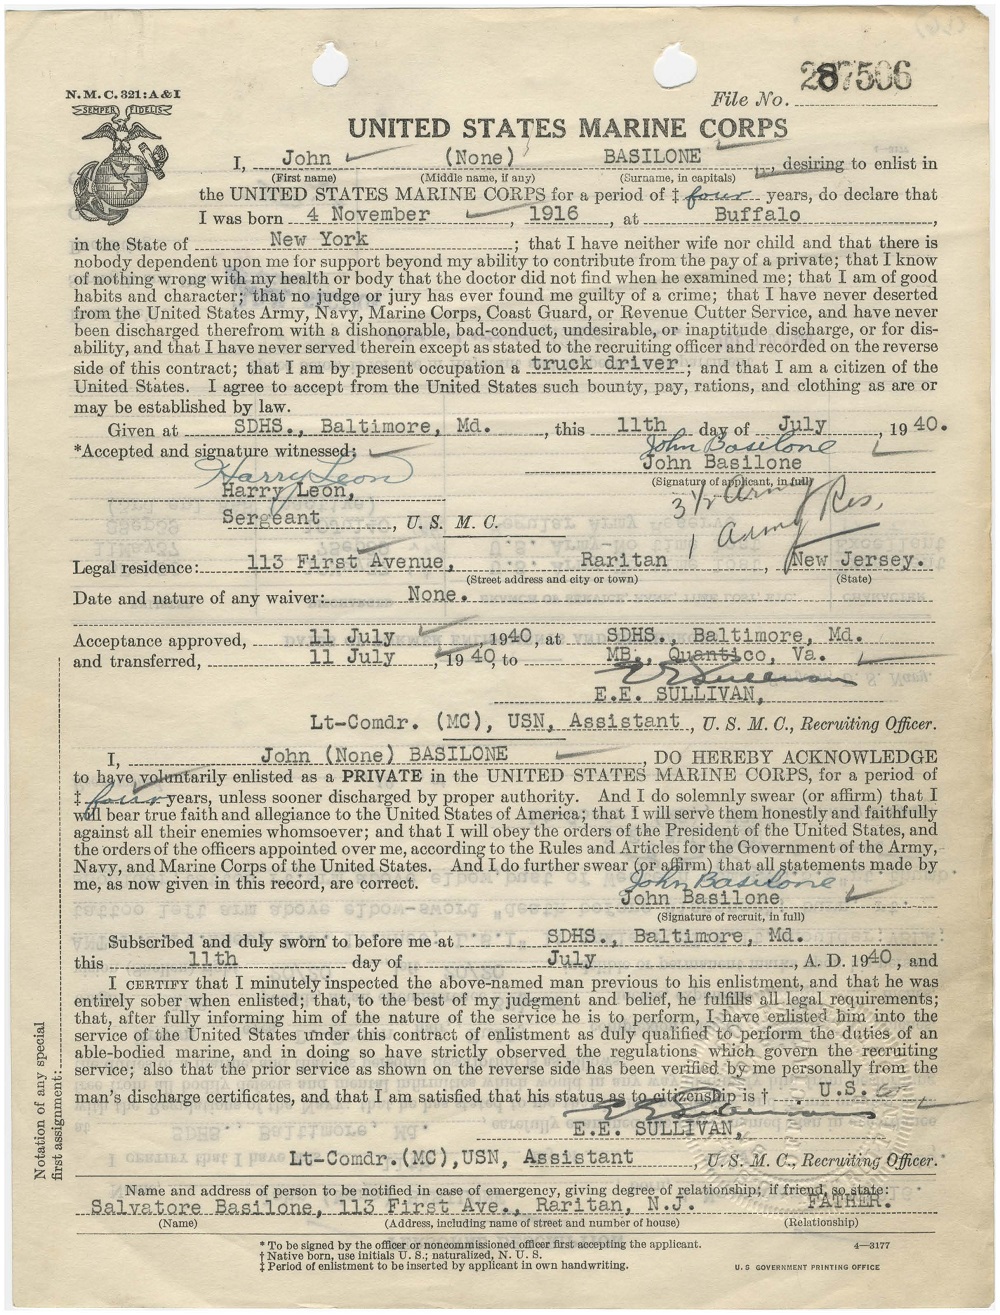 287506
N. M. C. 321: A & I
File No.
SEMPER FIDELIS
UNITED STATES MARINE CORPS
I, John (None) BASILONE, desiring to enlist in
(First name) (Middle name, if any) (Surname, in capitals)
the UNITED STATES MARINE CORPS for a period of ‡ four years, do declare that
I was born 4 November, 1916, at Buffalo,
in the State of New York; that I have neither wife nor child and that there is
nobody dependent upon me for support beyond my ability to contribute from the pay of a private; that I know
of nothing wrong with my health or body that the doctor did not find when he examined me; that I am of good
habits and character; that no judge or jury has ever found me guilty of a crime; that I have never deserted
from the United States Army, Navy, Marine Corps, Coast Guard, or Revenue Cutter Service, and have never
been discharged therefrom with a dishonorable, bad-conduct, undesirable, or inaptitude discharge, or for dis-
ability, and that I have never served therein except as stated to the recruiting officer and recorded on the reverse
side of this contract; that I am by present occupation a truck driver; and that I am a citizen of the
United States. I agree to accept from the United States such bounty, pay, rations, and clothing as are or
may be established by law.
Given at SDHS., Baltimore, Md., this 11th day of July, 1940.
*Accepted and signature witnessed: John Basilone
Harry Leon John Basilone
Harry Leon, (Signature of applicant, in full)
3 1/2 Army
Sergeant, U. S. M. C. 1 Army Res.
Legal residence: 113 First Avenue, Raritan, New Jersey.
(Street address and city or town) (State)
Date and nature of any waiver: None.
Acceptance approved, 11 July, 1940, at SDHS., Baltimore, Md.
and transferred, 11 July, 1940 to MB., Quantico, Va.
E E Sullivan
E.E. SULLIVAN,
Lt-Comdr. (MC), USN, Assistant, U. S. M. C., Recruiting Officer.
I, John (None) BASILONE, DO HEREBY ACKNOWLEDGE
to have voluntarily enlisted as a PRIVATE in the UNITED STATES MARINE CORPS, for a period of
‡ four years, unless sooner discharged by proper authority. And I do solemnly swear (or affirm) that I
will bear true faith and allegiance to the United States of America; that I will serve them honestly and faithfully
against all their enemies whomsoever; and that I will obey the orders of the President of the United States, and
the orders of the officers appointed over me, according to the Rules and Articles for the Government of the Army,
Navy, and Marine Corps of the United States. And I do further swear (or affirm) that all statements made by
me, as now given in this record, are correct. John Basilone
John Basilone
(Signature of recruit, in full)
Subscribed and duly sworn to before me at SDHS., Baltimore, Md.
this 11th day of July, A. D. 1940, and
I CERTIFY that I minutely inspected the above-named man previous to his enlistment, and that he was
entirely sober when enlisted; that, to the best of my judgment and belief, he fulfills all legal requirements;
that, after fully informing him of the nature of the service he is to perform, I have enlisted him into the
service of the United States under this contract of enlistment as duly qualified to perform the duties of an
able-bodied marine, and in doing so have strictly observed the regulations which govern the recruiting
service; also that the prior service as shown on the reverse side has been verified by me personally from the
man's discharge certificates, and that I am satisfied that his status as to citizenship is † U.S.
E E Sullivan
E.E. SULLIVAN,
Lt-Comdr.(MC),USN, Assistant, U. S. M. C., Recruiting Officer.
Notation of any special
first assignment:
Name and address of person to be notified in case of emergency, giving degree of relationship; if friend, so state:
Salvatore Basilone, 113 First Ave., Raritan, N.J. FATHER.
(Name) (Address, including name of street and number of house) (Relationship)
* To be signed by the officer or noncommissioned officer first accepting the applicant. 4—3177
† Native born, use initials U. S.; naturalized, N. U. S.
‡ Period of enlistment to be inserted by applicant in own handwriting. U. S GOVERNMENT PRINTING OFFICE